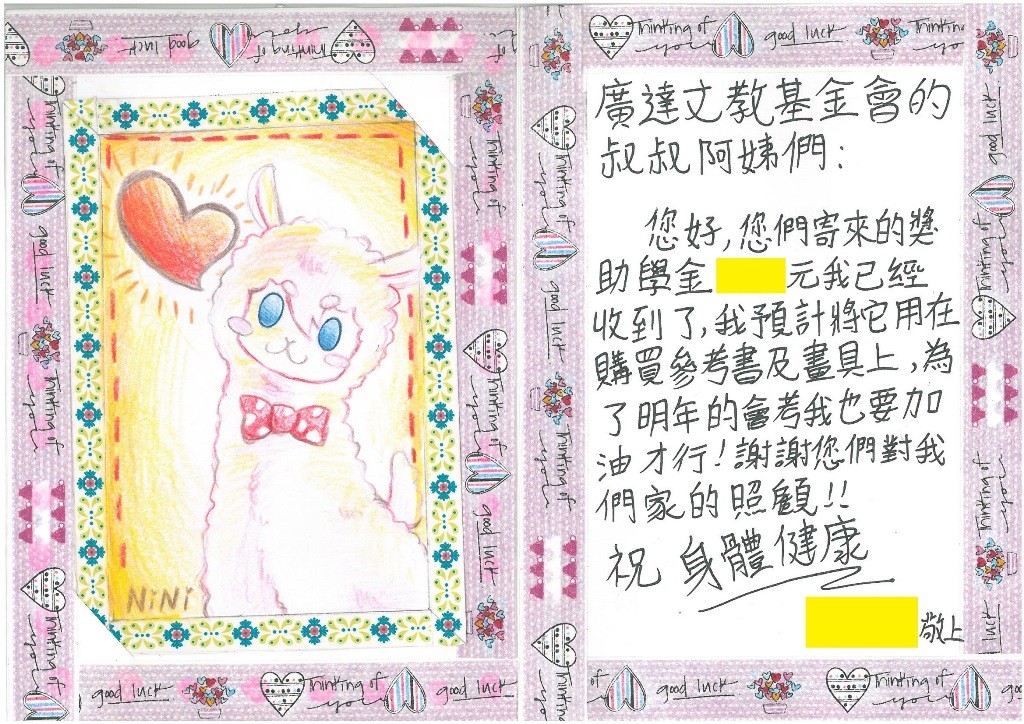 NiNi
廣達文教基金會的
叔叔阿姨們:
您好,您們寄來的獎
助學金 元我已經
收到了,我預計將它用在
購買參考書及畫具上,為
了明年的會考我也要加
油才行!謝謝您們對我
們家的照顧!!
祝 身體健康
敬上
good luck
Thinking of you
good luck
Thinking of you
good luck
Thinking of you
good luck
Thinking of you